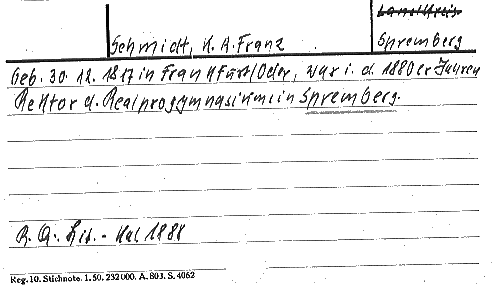 Landkreis
Schmidt, K. A. Franz
Spremberg
Geb. 30. 12. 1817 in Frankfurt/Oder, war i. d. 1880er Jahren
Rektor d. Realprogymnasiums in Spremberg.
Lit. - Kal. 1888
Reg. 10. Stichnote. 1. 50. 232000. A. 803. S. 4062